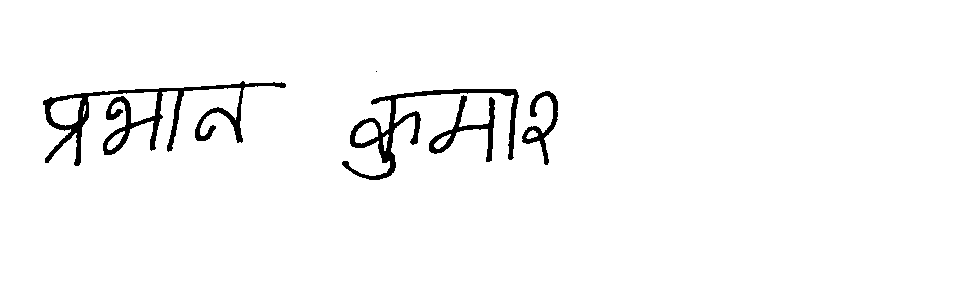 प्रभान कुमार